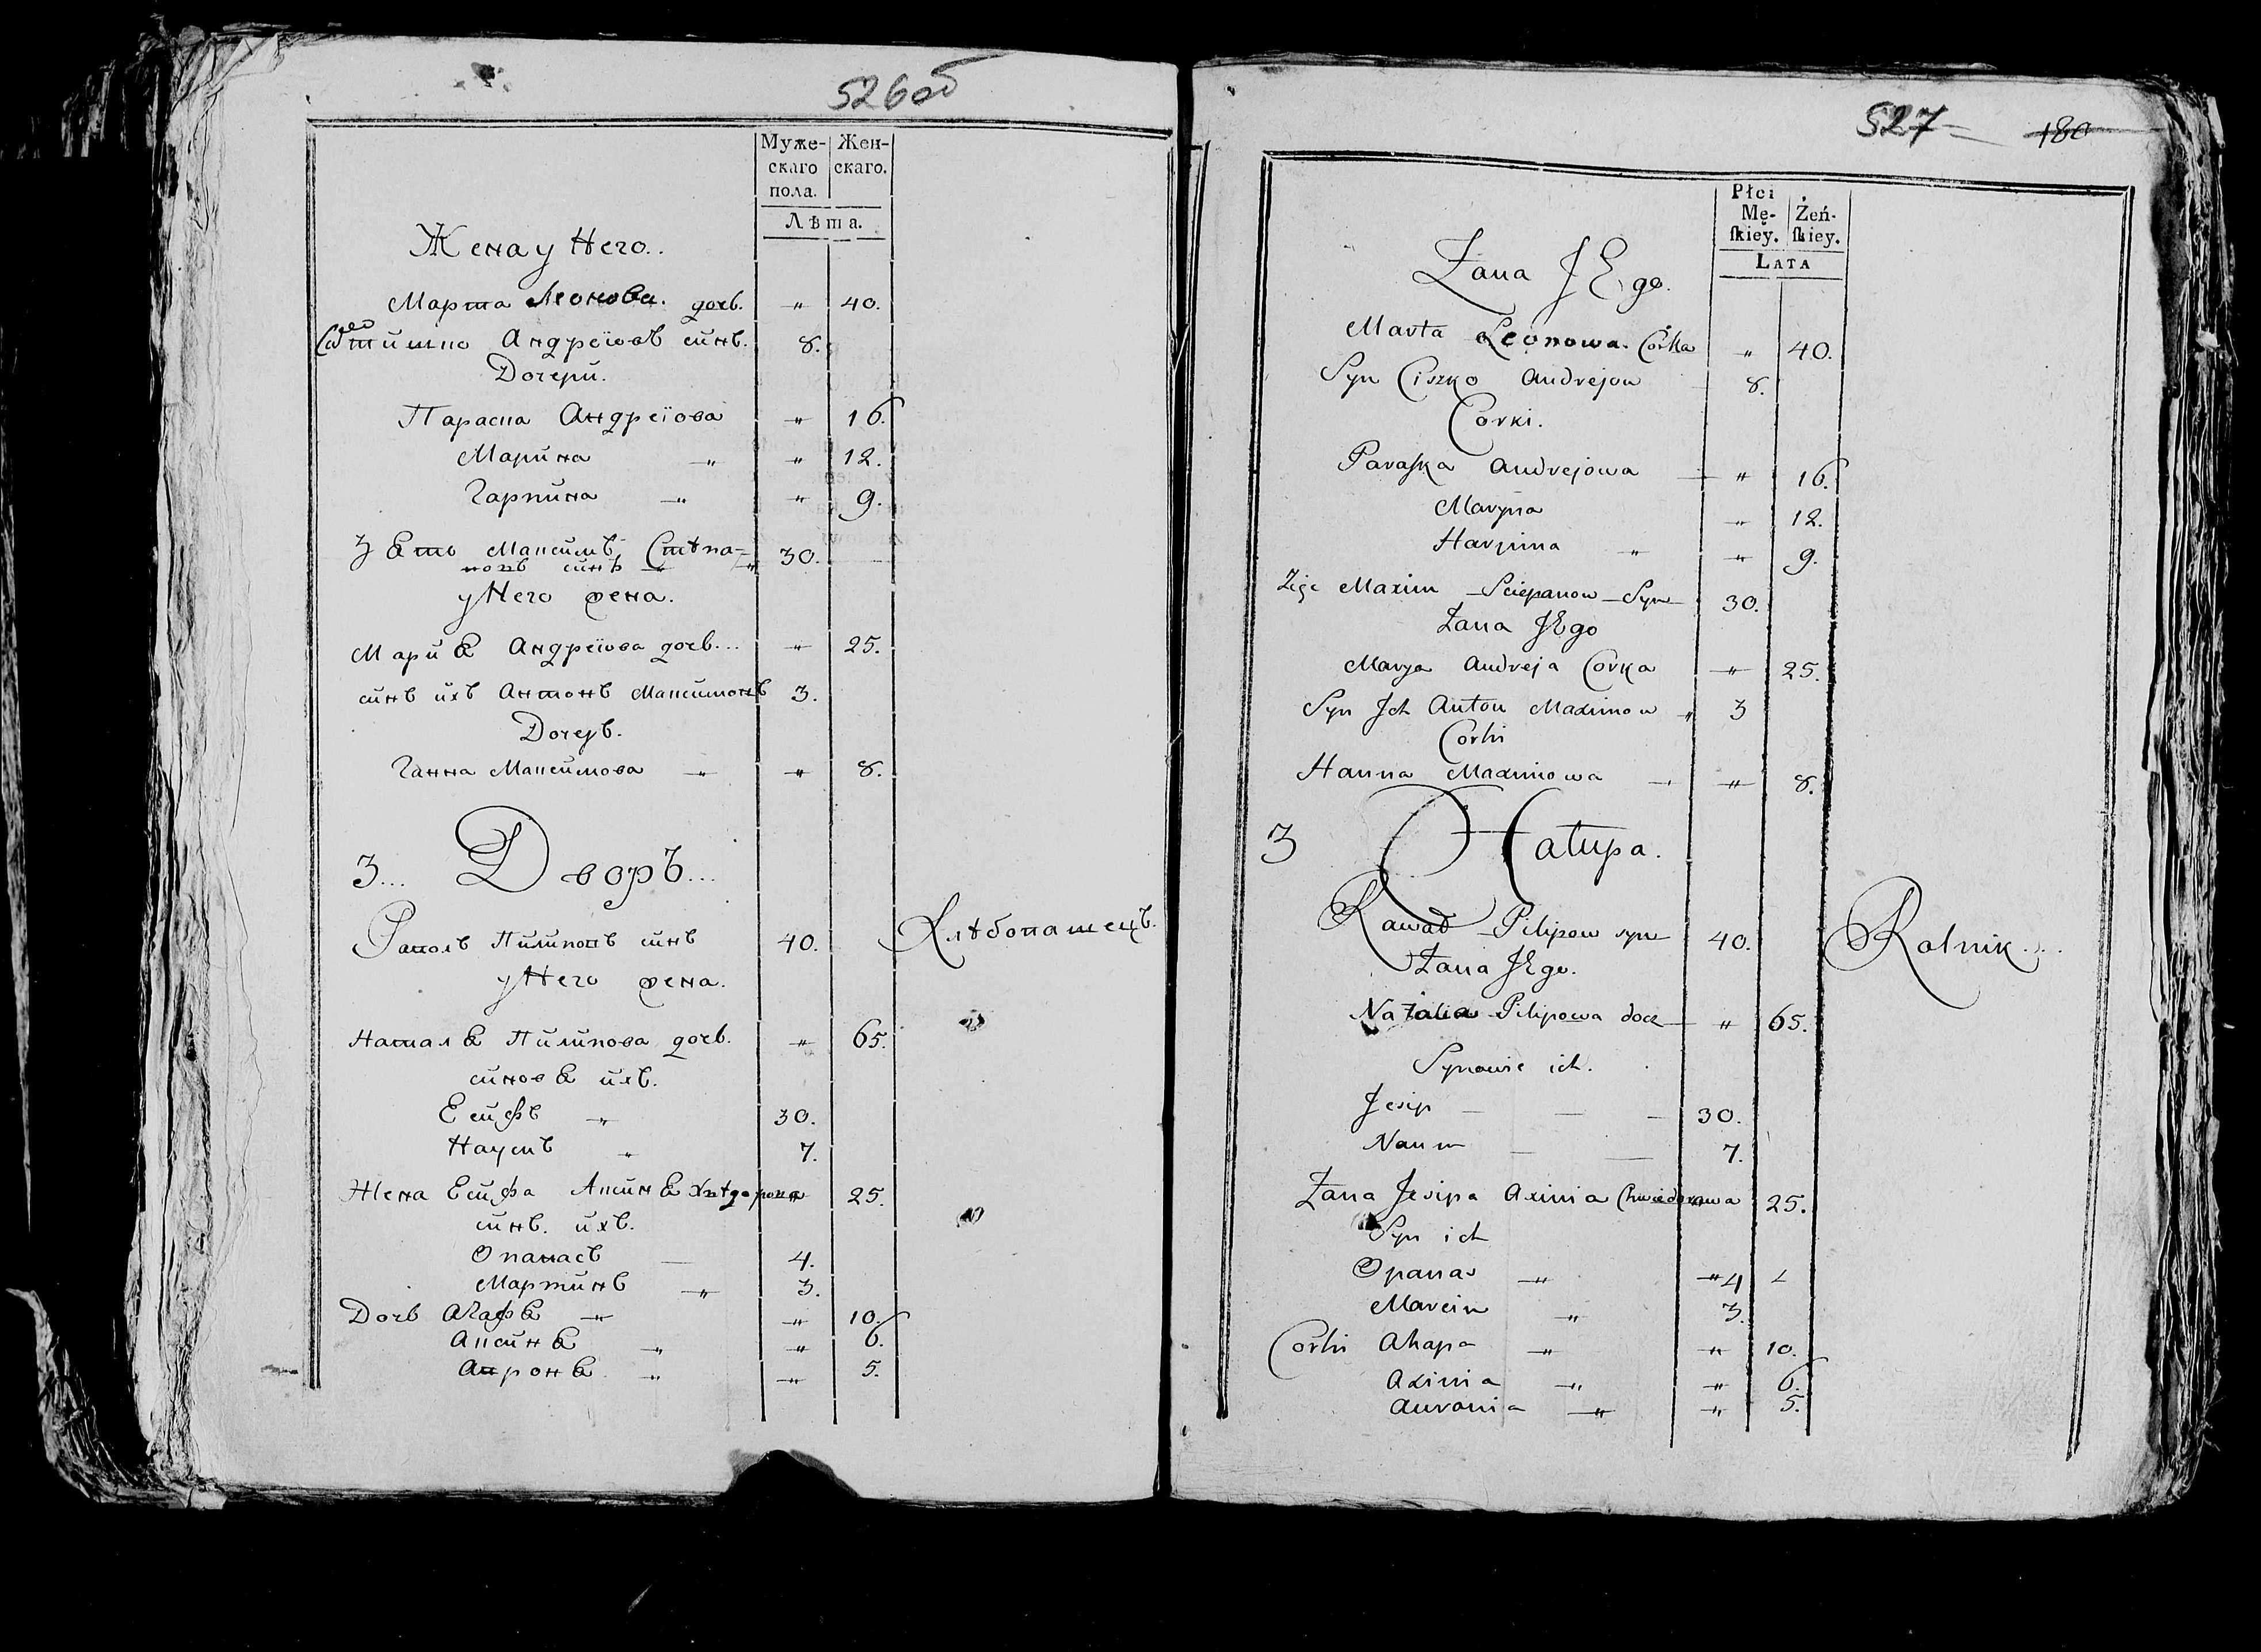 526об
Муже- Жен-
скаго скаго.
пола.
Лѣта.
Жена у Него..
Марта Леонова. дочь. " 40.
Тишко Андреіовъ синъ. 8.
Дочери.
Параска Андреіова " 16.
Марина " " 12.
Гарпина " " 9.
Зять Максимъ Стѣпа-
новъ синъ " 30.
у Него жена.
Мария Андреіова дочь... " 25.
синъ ихъ Антонъ Максимовъ 3.
Дочерь.
Ганна Максимова " " 8.
3... Дворъ...
Пилиповъ синъ 40. Хлѣбопашецъ.
у Него жена.
Наталя Пилипова дочь. " 65.
синовя ихъ.
Есифъ " 30.
Наумъ " 7.
Жена Есифа Аксиня Хвѣдорова " 25.
синъ. ихъ.
Опанасъ — 4.
Мартинъ " 3.
Дочь Агафя " " 10.
Аксиня " " 6.
Апроня " " 5.
527 180
Płci
Mę- Żeń-
skiey. skiey.
LATA
Żana JEgo.
Marta Leonowa. Corka " 40.
Syn Ciszko Andrejow 8.
Corki.
Paraska Andrejowa " 16.
Maryna " 12.
Harpina " " 9.
Zięc Maxim Sciepanow Syn 30.
Żana JEgo
Marya Andreja Corka " 25.
Syn Ich Anton Maximow " 3
Corki
Hanna Maximowa " 8.
3 Chatupa.
Pilipow syn 40. Rolnik...
Żana JEgo.
Natalia Pilipowa docz " 65.
Synowie ich.
Jesip — — — 30.
Naum — — 7.
Żana Jesipa Axinia Chwiedorowa " 25.
Syn ich
Opanas " " 4
Marcin " 3.
Corki Ahapa " " 10.
Axinia " " 6.
Auronia " " 5.